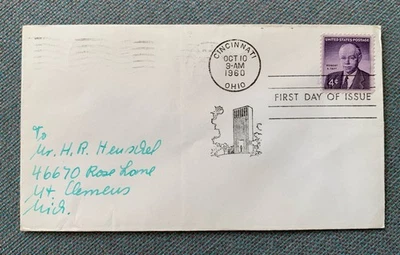 CINCINNATI
OCT 10
9-AM
1960
OHIO
UNITED STATES POSTAGE
4¢
FIRST DAY OF ISSUE
To
Mr. H. R. Henschel
46670 Rose Lane
Mt. Clemens
Mich.